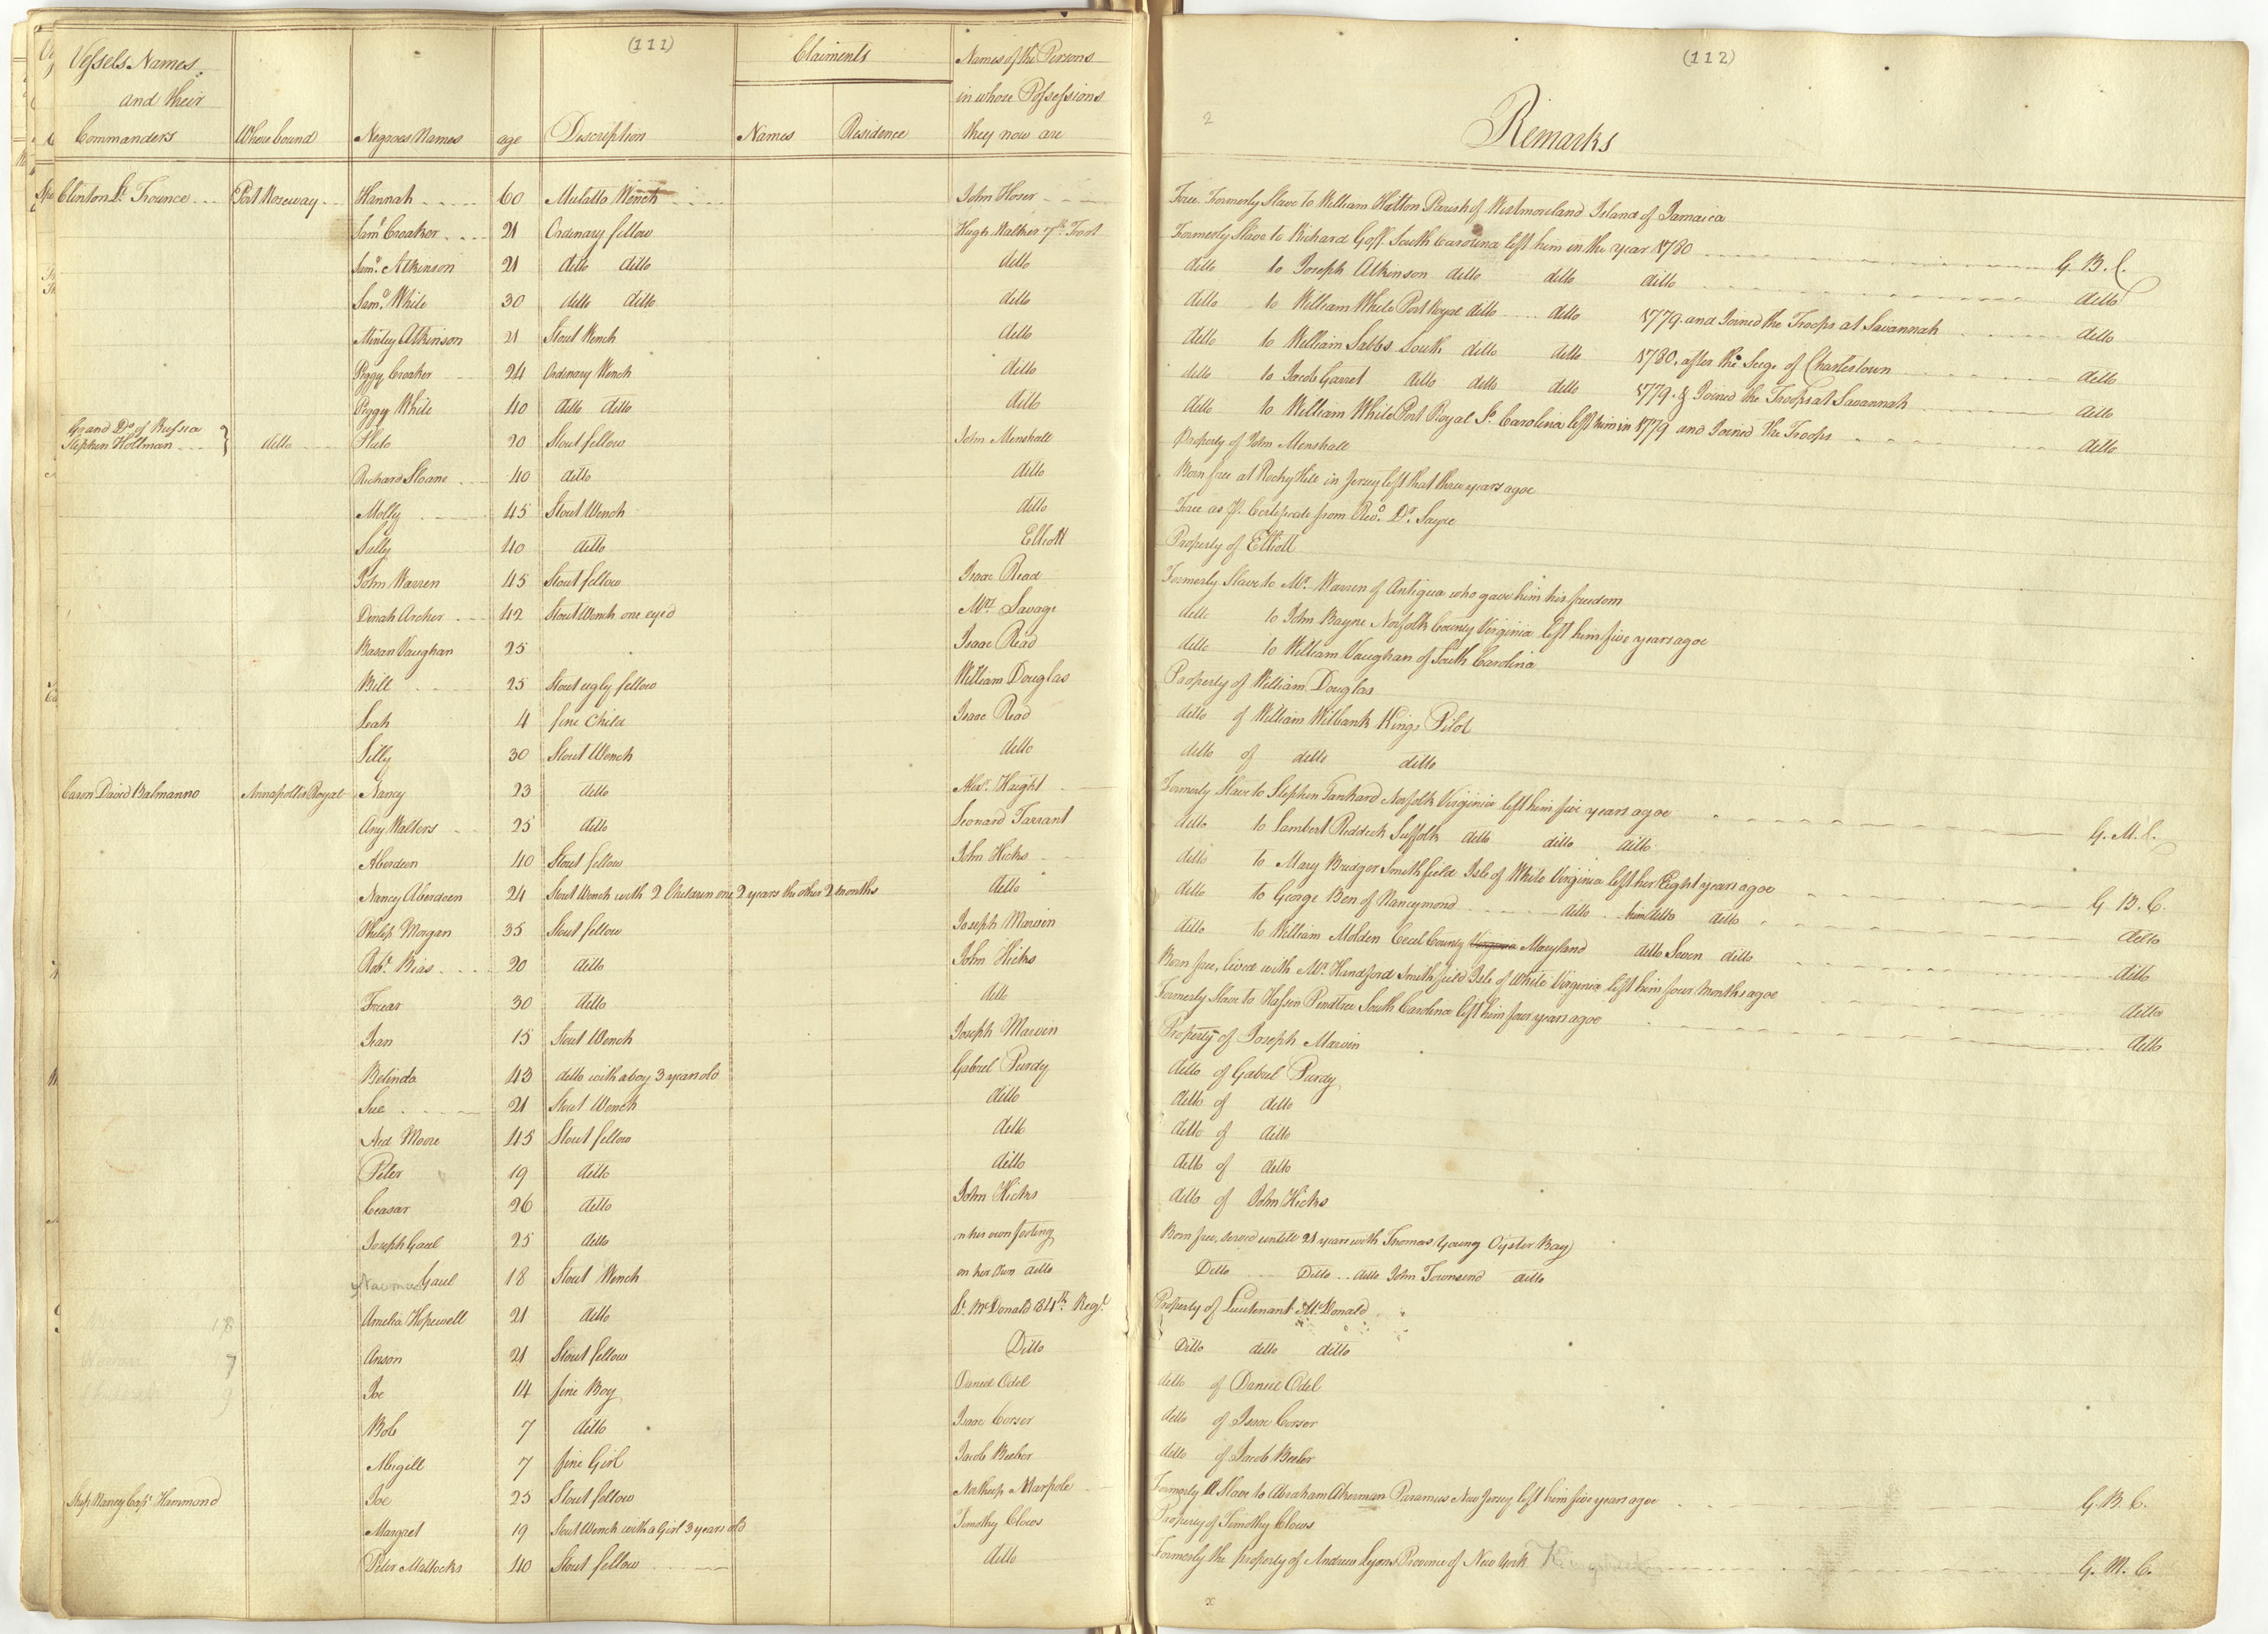 (111)
Vessels Names and their Commanders | Where bound | Negroes Names | age | Description | Claiments Names | Residence | Names of the Persons in whose Possessions they now are
Clinton Lt. Trounce | Port Roseway | Hannah | 60 | Mulatto Wench | John Hoser
Saml. Croaker | 21 | Ordinary fellow | Hugh Walker 7th. Foot
Saml. Atkinson | 21 | ditto ditto | ditto
Saml. White | 30 | ditto ditto | ditto
Minley Atkinson | 21 | Stout Wench | ditto
Peggy Croaker | 24 | Ordinary Wench | ditto
Peggy White | 40 | ditto ditto | ditto
Grand Ds. of Russia
Stephen Holtman | ditto | Pluto | 20 | Stout fellow | John Menshall
Richard Sloane | 40 | ditto | ditto
Molly | 45 | Stout Wench | ditto
Sally | 40 | ditto | Elliott
John Warren | 45 | Stout fellow | Isaac Read
Dinah Archer | 42 | Stout Wench one eyed | Mrs. Savage
Basan Vaughan | 25 | Isaac Read
Bill | 25 | Stout ugly fellow | William Douglas
Leah | 4 | fine Child | Isaac Read
Silly | 30 | Stout Wench | ditto
Cason David Balmanno | Annapollis Royal | Nancy | 23 | ditto | Alexr. Haight
Any Walters | 25 | ditto | Leonard Tarrant
Aberdeen | 40 | Stout fellow | John Hicks
Nancy Aberdeen | 24 | Stout Wench with 2 Children one 2 years the other 2 months | ditto
Philip Morgan | 35 | Stout fellow | Joseph Marvin
Robt. Bias | 20 | ditto | John Hicks
Friar | 30 | ditto | ditto
Jean | 15 | Stout Wench | Joseph Marvin
Belinda | 43 | ditto with a boy 3 years old | Gabriel Purdy
Sue | 21 | Stout Wench | ditto
Ned Moore | 45 | Stout fellow | ditto
Peter | 19 | ditto | ditto
Ceasar | 26 | ditto | John Hicks
Joseph Gaul | 25 | ditto | on his own footing
Gaul | 18 | Stout Wench | on her own ditto
Amelia Hopewell | 21 | ditto | Lt. McDonald 84th. Regt.
Anson | 21 | Stout fellow | Ditto
Joe | 14 | fine Boy | Daniel Odel
Bob | 7 | ditto | Isaac Corser
Abigill | 7 | fine Girl | Jacob Beeber
Ship Nancy Capt. Hammond | Joe | 25 | Stout fellow | Northrup Marpole
Margret | 19 | Stout Wench with a Girl 3 years old | Timothy Clows
Peter Mattocks | 40 | Stout fellow | ditto
(112)
2
Remarks
Free. Formerly Slave to William Hatton Parish of Westmoreland Island of Jamaica
Formerly Slave to Richard Goff South Carolina left him in the year 1780 G. B. C.
ditto to Joseph Atkinson ditto ditto ditto ditto
ditto to William White Port Royal ditto ditto 1779. and Joined the Troops at Savannah ditto
ditto to William Sabbs South ditto ditto 1780. after the Siege of Charlestown ditto
ditto to Jacob Garret ditto ditto ditto 1779. & Joined the Troops at Savannah ditto
ditto to William White Port Royal So. Carolina left him in 1779 and Joined the Troops ditto
Property of John Menshall
Born free at Rocky Hill in Jersey left that three years agoe
Free as P. Certificate from Revd. Dr. Sayre
Property of Elliott
Formerly Slave to Mr. Warren of Antigua who gave him his freedom
ditto to John Bayne Norfolk County Virginia left him five years agoe
ditto to William Vaughan of South Carolina
Property of William Douglas
ditto of William Wilbank Kings Pilot
ditto of ditto ditto
Formerly Slave to Stephen Tankard Norfolk Virginia left him five years agoe G. M. C.
ditto to Lambert Reddick Suffolk ditto ditto ditto
ditto to Mary Bridger Smithfield Isle of White Virginia left her Eight years agoe G. B. C.
ditto to George Bon of Nancymond ditto him ditto ditto ditto
ditto to William Molden Cecel County Virginia Maryland ditto Seven ditto ditto
Born free, lived with Mr. Handford Smithfield Isle of White Virginia left him four months agoe ditto
Formerly Slave to Hassen Pendtree South Carolina left him four years agoe ditto
Property of Joseph Marvin
ditto of Gabriel Purdy
ditto of ditto
ditto of ditto
ditto of ditto
ditto of John Hicks
Born free, served untill 21 years with Thomas Young Oyster Bay
Ditto Ditto ditto John Townsend ditto
Property of Lieutenant McDonald
Ditto ditto ditto
ditto of Daniel Odel
ditto of Isaac Corser
ditto of Jacob Beeber
Formerly a Slave to Abraham Akerman Paramus New Jersey left him five years agoe G. B. C.
Property of Timothy Clows
Formerly the property of Andrew Lyons Province of New York G. M. C.